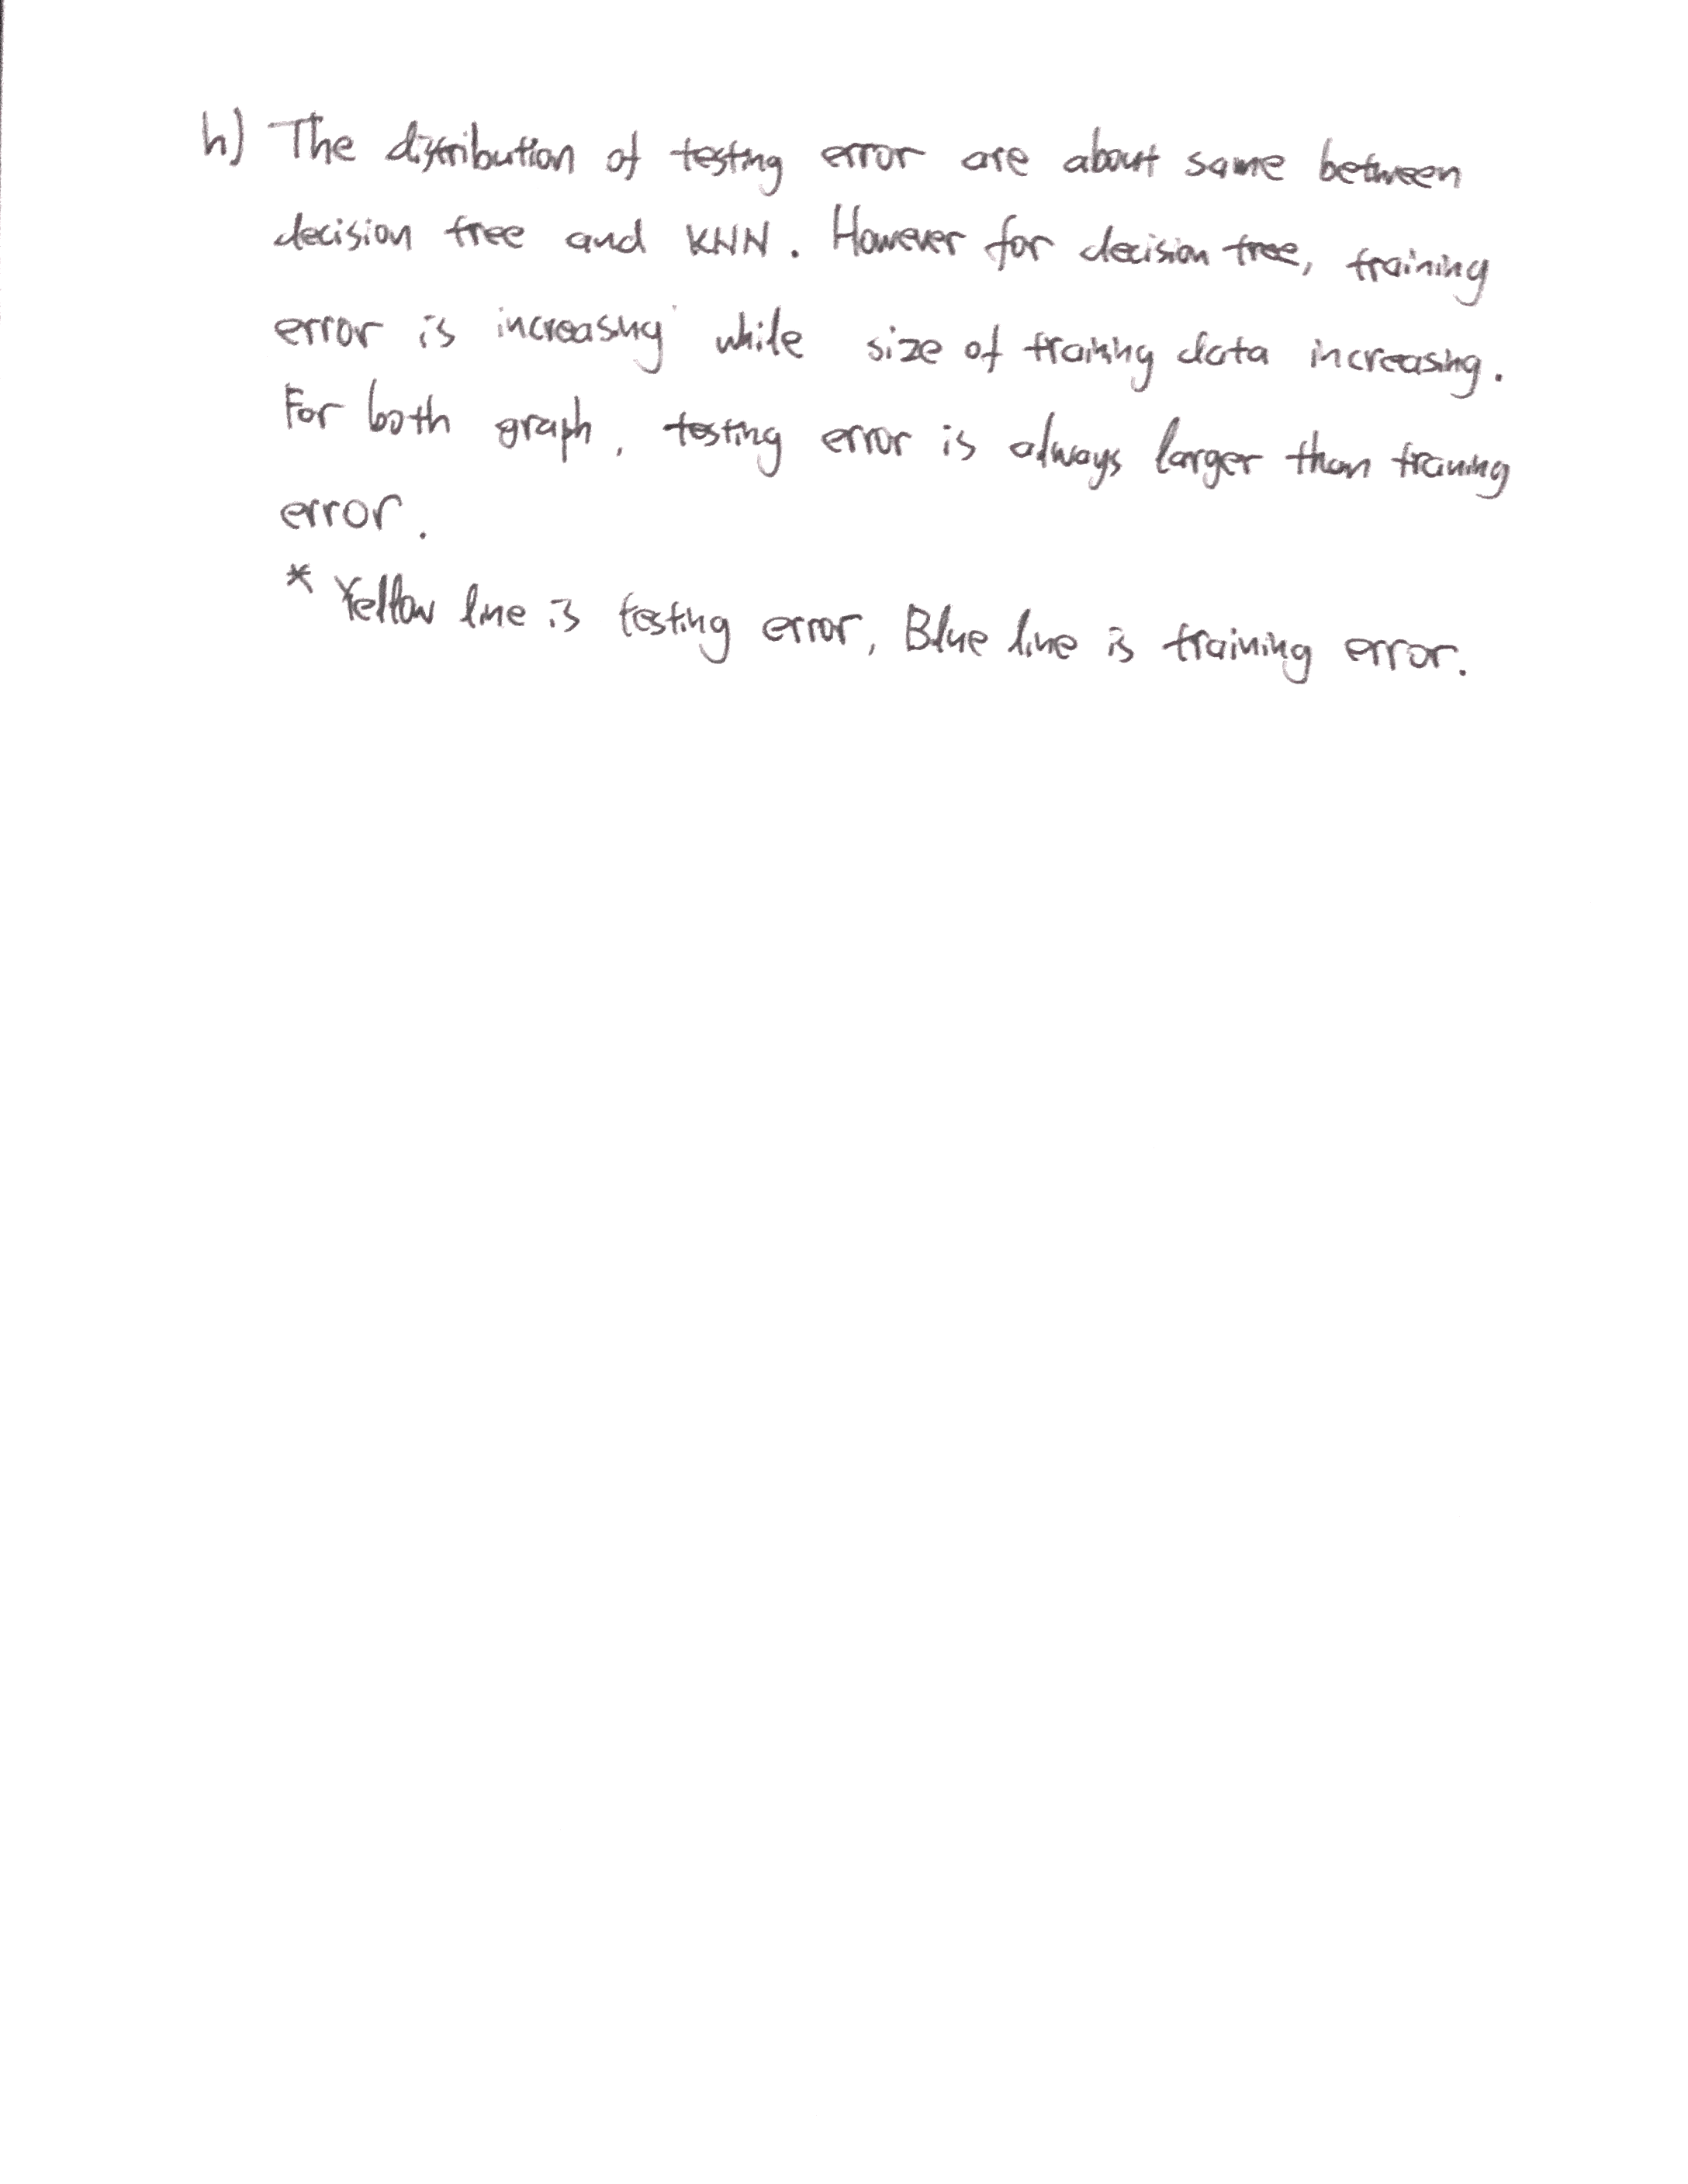 h) The distribution of testing error are about same between
decision tree and KNN. However for decision tree, training
error is increasing while size of training data increasing.
For both graph, testing error is always larger than training
error.
* Yellow line is testing error, Blue line is training error.